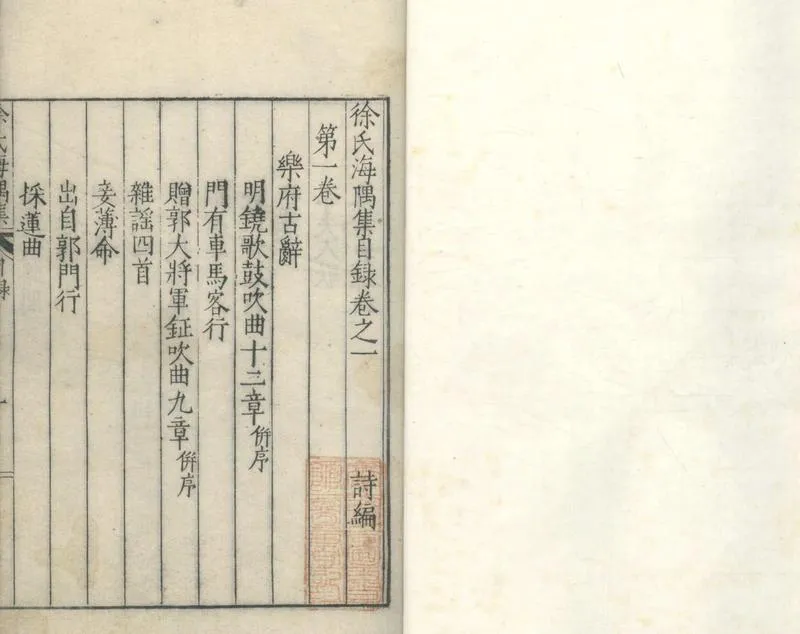 徐氏海隅集目録卷之一 詩編
第一卷
樂府古辭
明鐃歌鼓吹曲十三章 併序
門有車馬客行
贈郭大將軍鉦吹曲九章 併序
雜謡四首
妾薄命
出自郭門行
採蓮曲
徐氏海隅集 目録